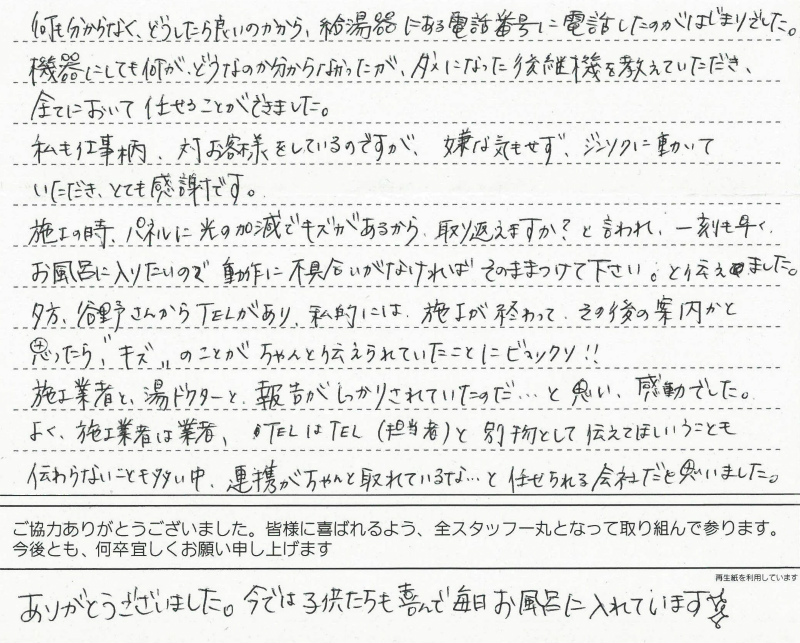 何も分からなく、どうしたら良いのカから、給湯器にある電話番号に電話したのがはじまりでした。
機器にしても何が、どうなのか分からなかったが、ダメになった後継機を教えていただき、
全てにおいて任せることができました。
私も仕事柄、対お客様をしているのですが、嫌な気もせず、ジンソクに動かいて
いただき、とても感謝です。
施工の時、パネルに光の加減でキズがあるから、取り返えますか?と言われ、一刻も早く、
お風呂に入りたいので動作に不具合いがなければそのままつけて下さい。と伝えました。
夕方、谷野さんからTELがあり、私的には、施工が終わって、その後の案内かと
思ったら"キズ"のことがちゃんと伝えられていたことにビックリ!!
施工業者と、湯ドクターと、報告がしっかりされていたのだ…と思い、感動でした。
よく、施工業者は業者、TELはTEL(担当者)と別物として伝えてほしいうことも
伝わらないことも多い中、連携がちゃんと取れているな…と任せられる会社だと思いました。
ご協力ありがとうございました。皆様に喜ばれるよう、全スタッフ一丸となって取り組んで参ります。
今後とも、何卒宜しくお願い申し上げます
再生紙を利用しています
ありがとうございました。今では子供たちも喜んで毎日お風呂に入れています